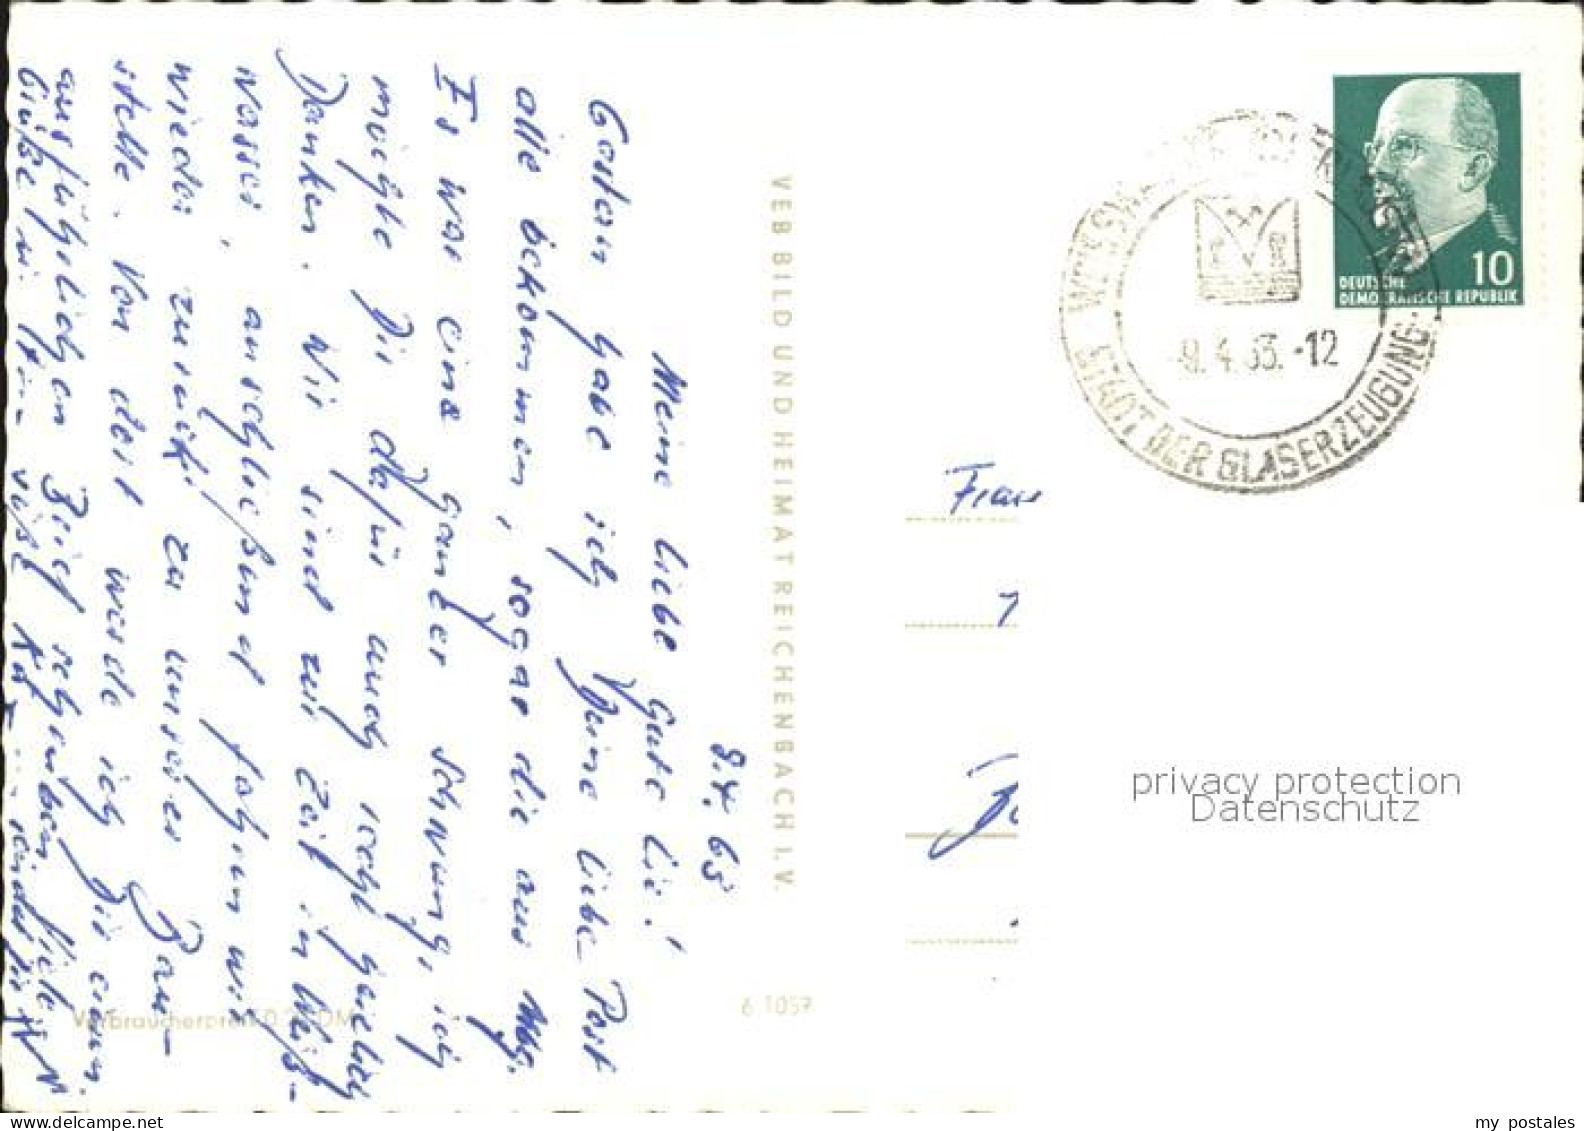 8.4.63
Meine liebe gute Lie!
Gestern habe ich Deine liebe Post
alle bekommen, sogar die aus Mbg.
Es war eine ganzer Schwung, ich
möchte Dir dafür auch recht herzlich
Danken. Wir sind zur Zeit in Weiß-
wasser, anschließend fahren wir
wieder zurück zu unserer Bau-
stelle. Von dort werde ich Dir einen
ausführlichen Brief schreiben. Viele
Grüße
VEB BILD UND HEIMAT REICHENBACH I. V.
6 1057
Verbraucherpreis DM
WEISSWASSER
9.4.63.-12
STADT DER GLASERZEUGUNG
10
DEUTSCHE
DEMOKRATISCHE REPUBLIK
Frau
privacy protection
Datenschutz
my postales
www.delcampe.net